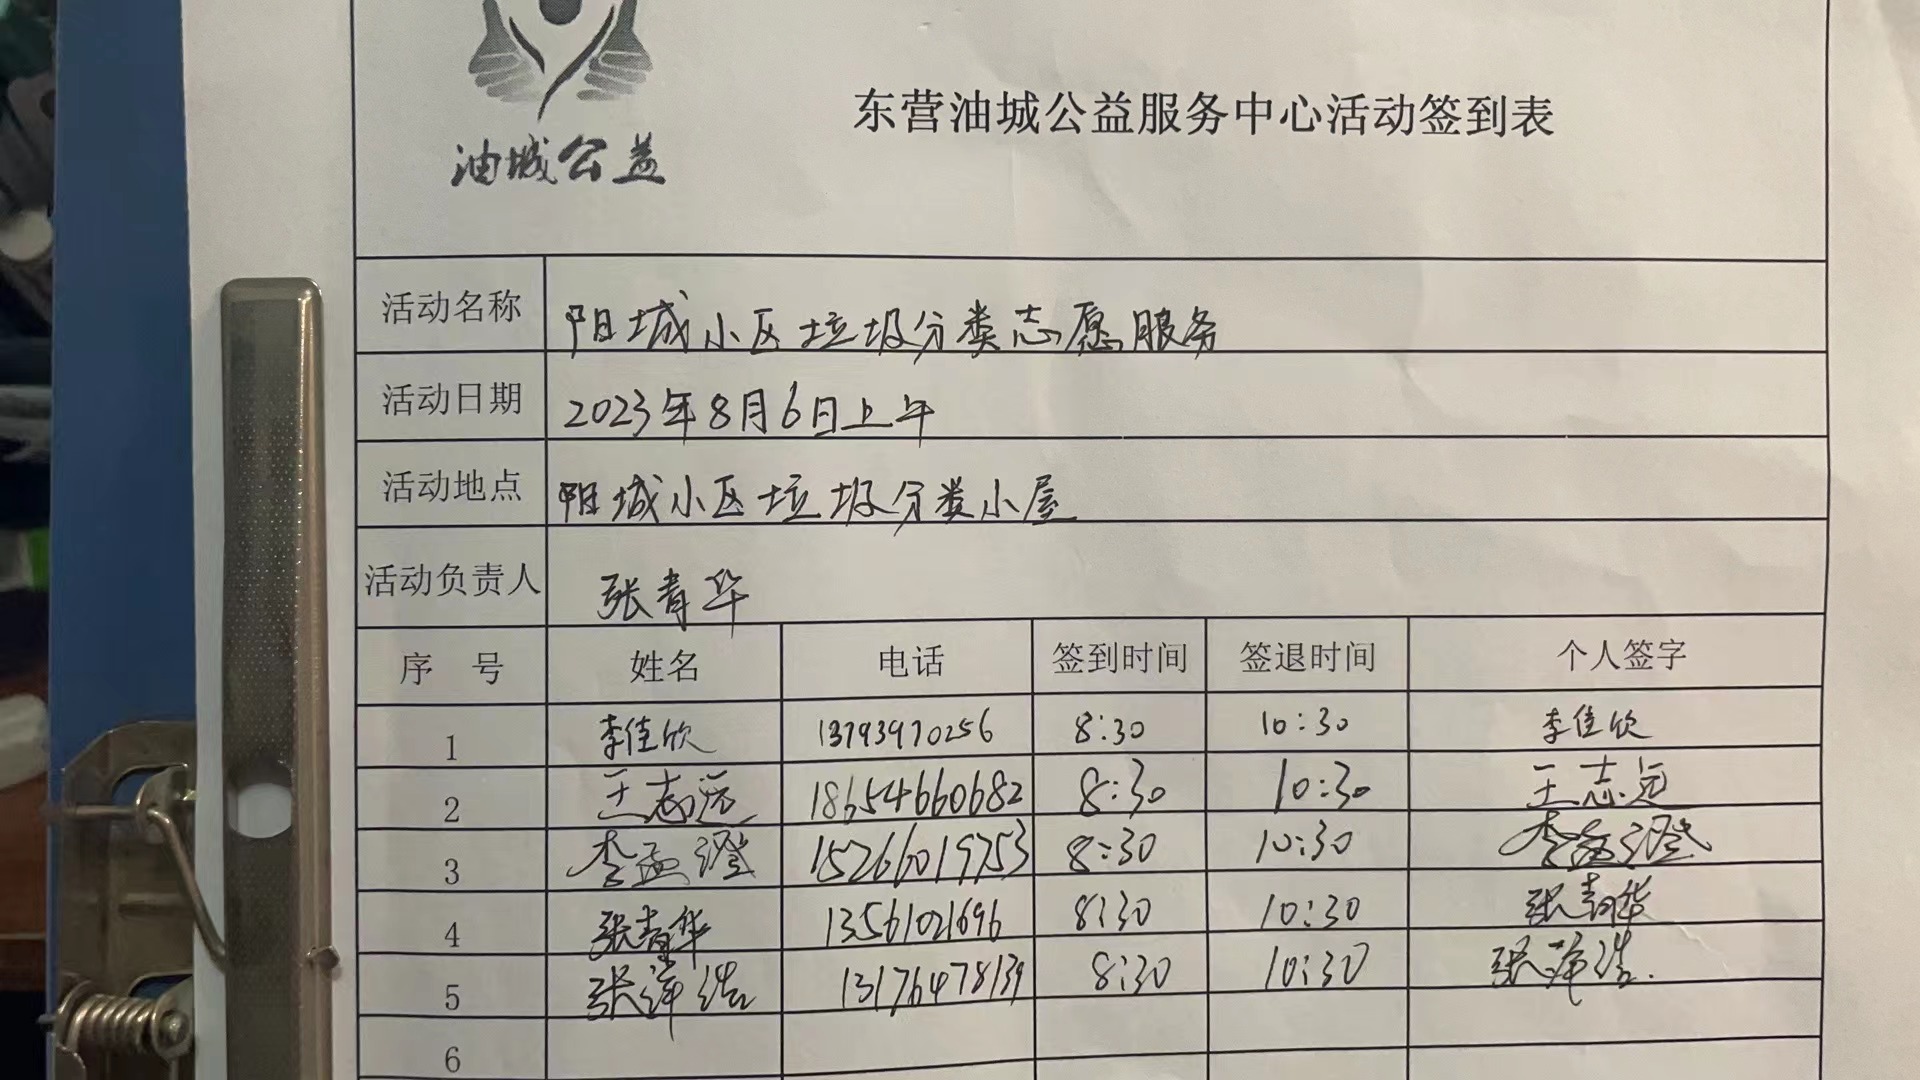 油城公益
东营油城公益服务中心活动签到表
活动名称 阳城小区垃圾分类志愿服务
活动日期 2023年8月6日上午
活动地点 阳城小区垃圾分类小屋
活动负责人 张青华
序 号 姓名 电话 签到时间 签退时间 个人签字
1 李佳欣 13793970256 8:30 10:30 李佳欣
2 王志远 18654660682 8:30 10:30 王志远
3 李孟澄 15266019753 8:30 10:30 李孟澄
4 张青华 13561021696 8:30 10:30 张青华
5 张泽浩 13176478139 8:30 10:30 张泽浩
6